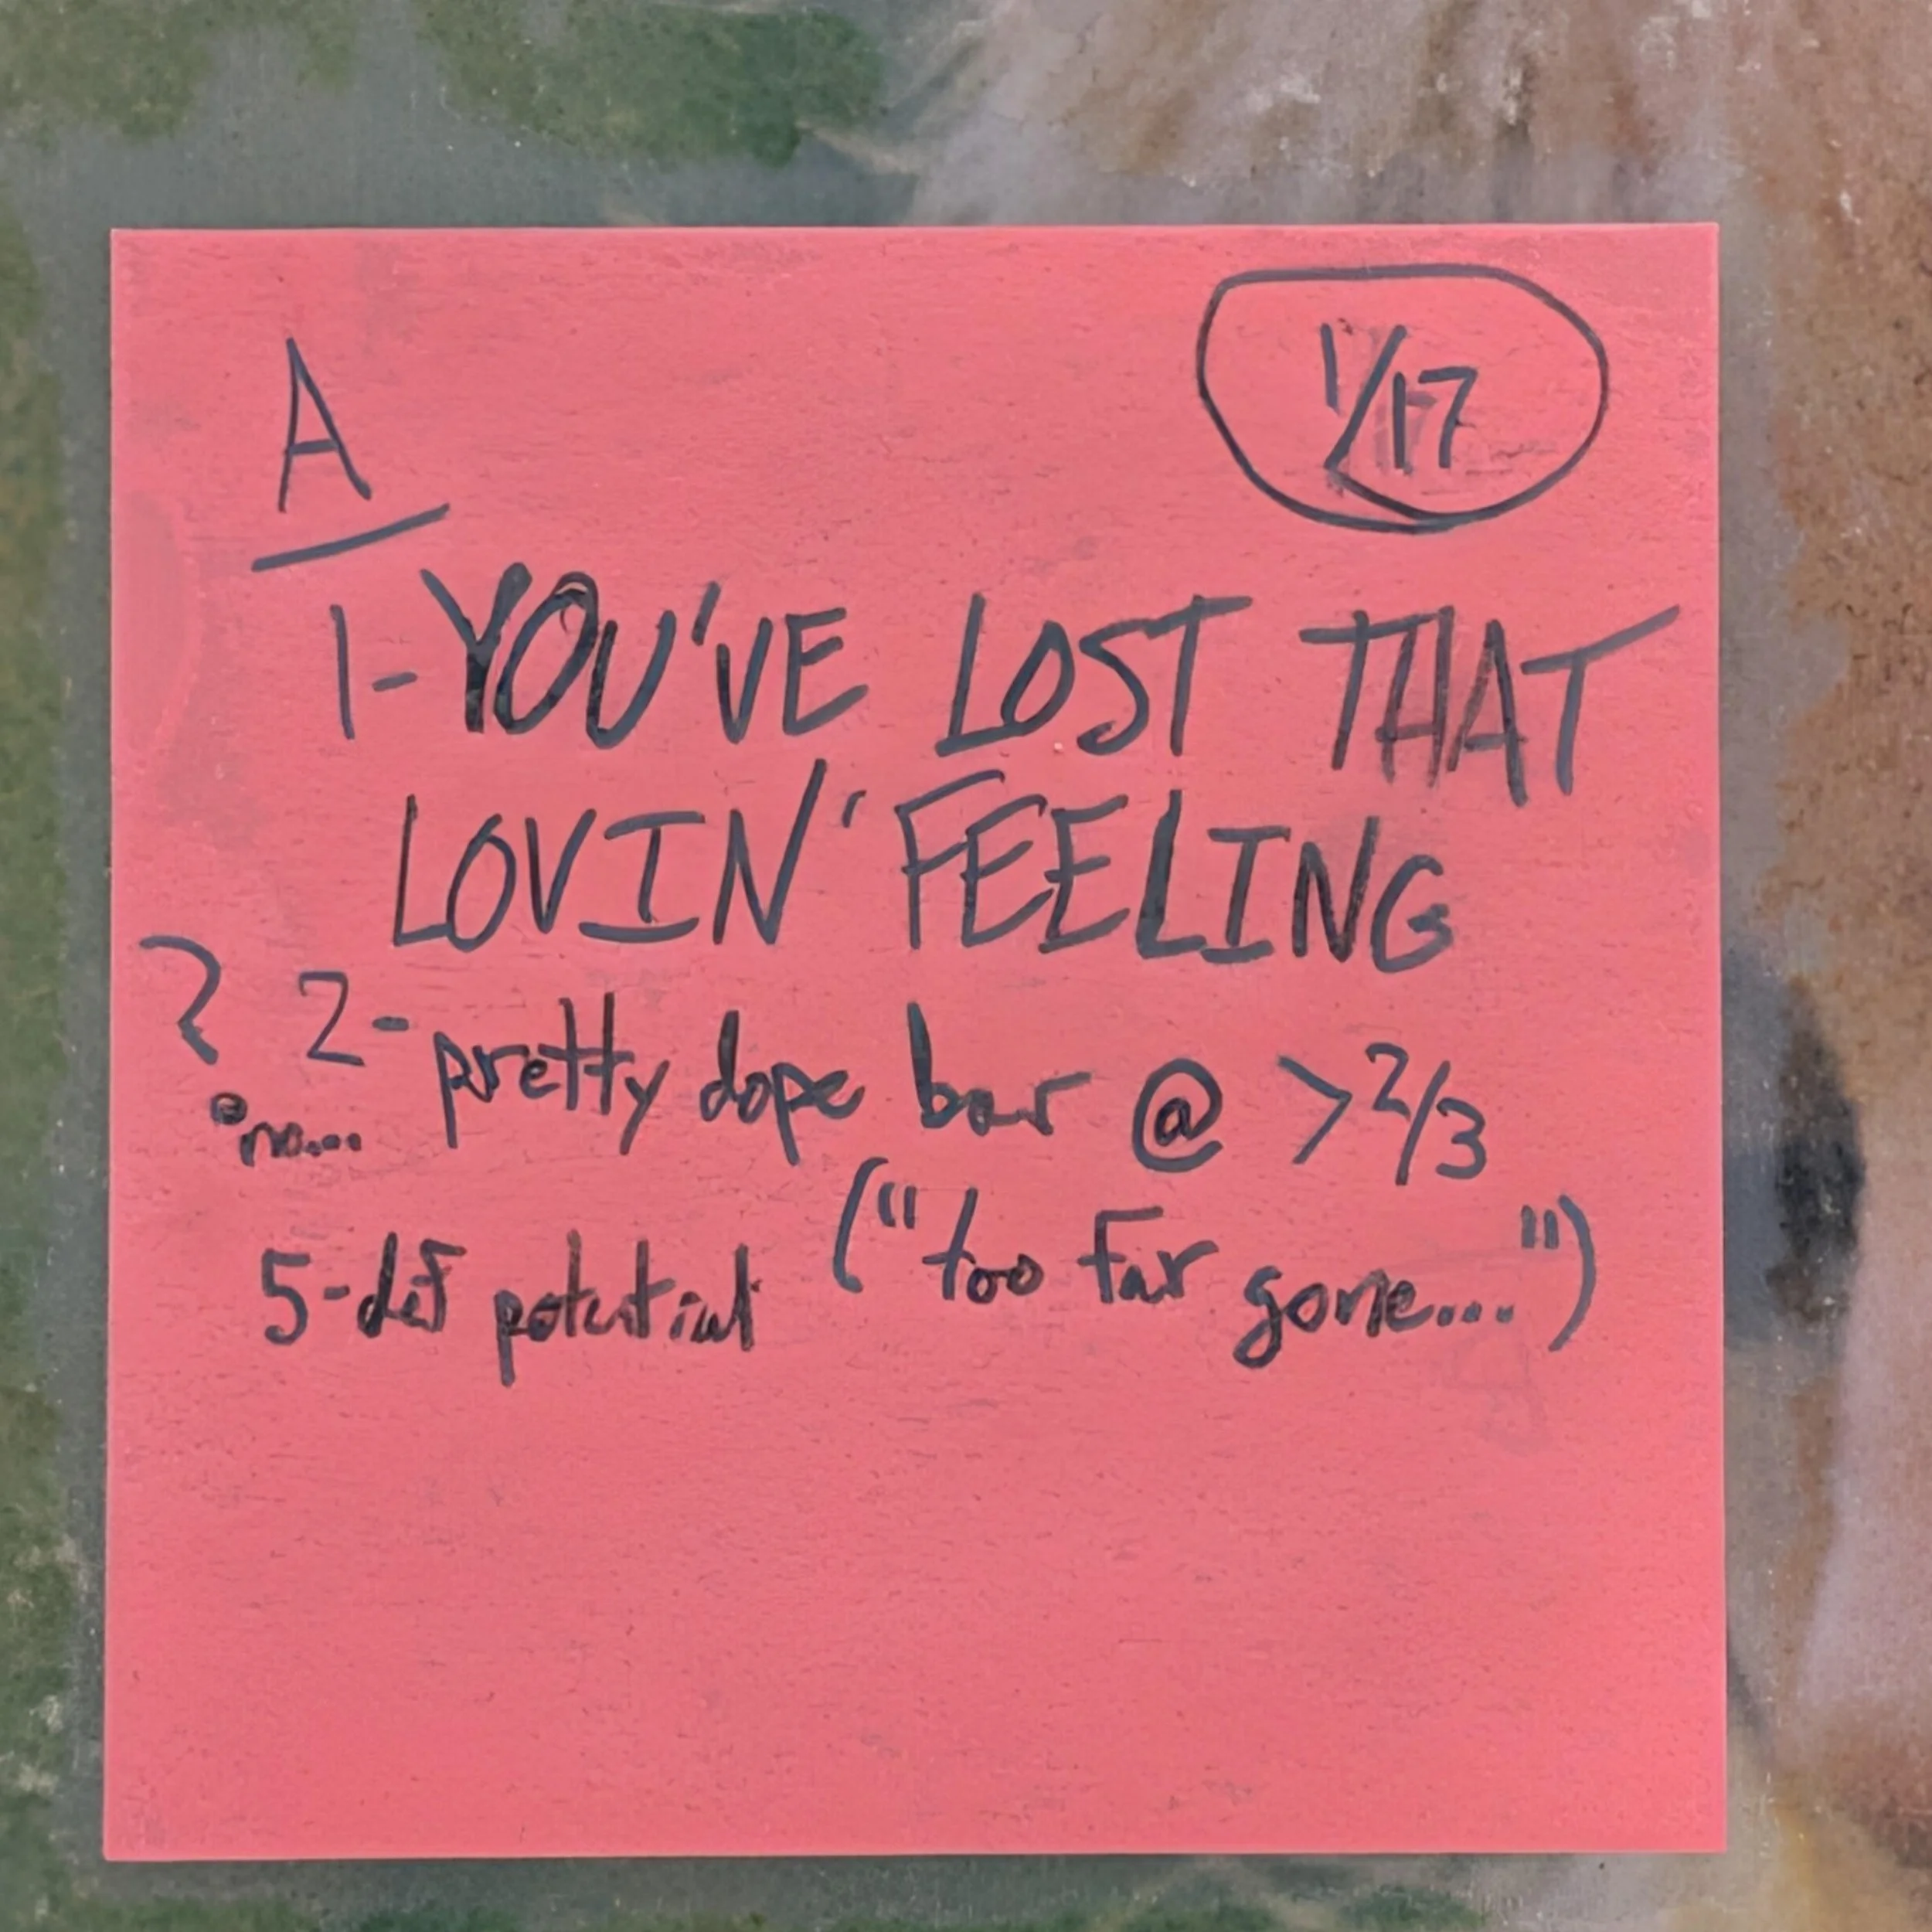 A
1/17
1-YOU'VE LOST THAT
LOVIN' FEELING
? 2-pretty dope bar @ >2/3
no...
("too far gone...")
5-def potential